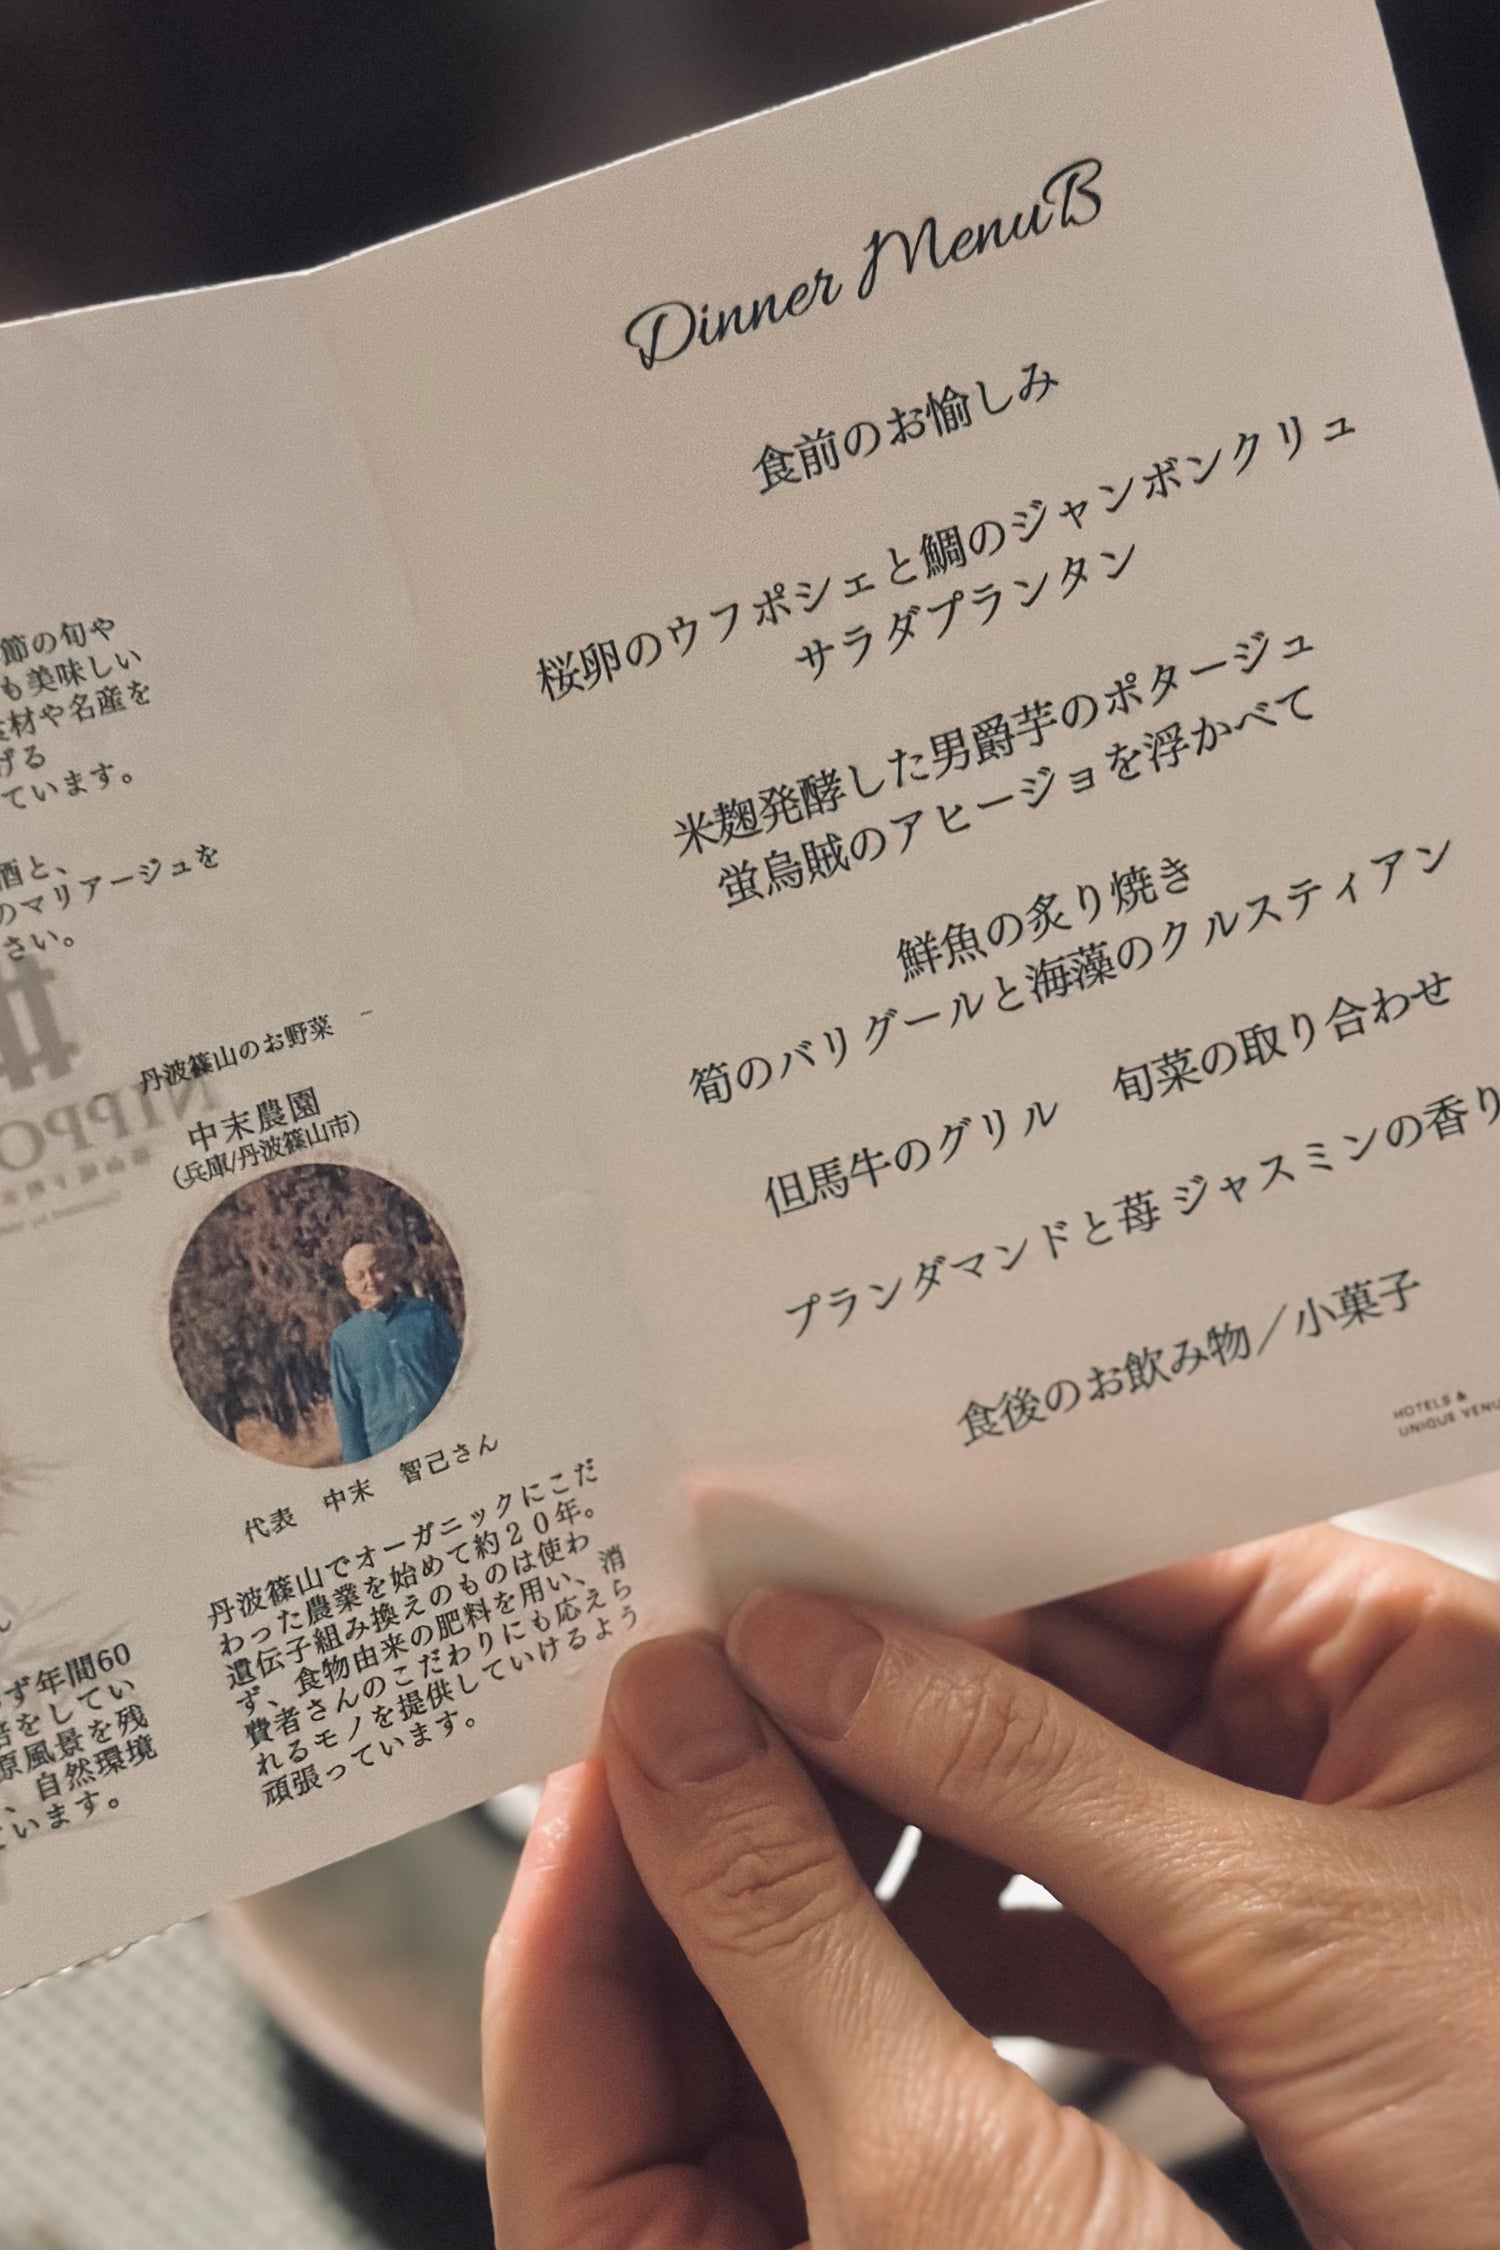 節の旬や
も美味しい
材や名産を
げる
ています。
酒と、
のマリアージュを
さい。
丹波篠山のお野菜 -
中末農園
(兵庫/丹波篠山市)
代表 中末 智己さん
丹波篠山でオーガニックにこだ
わった農業を始めて約20年。
遺伝子組み換えのものは使わ
ず、食物由来の肥料を用い、消
費者さんのこだわりにも応えら
れるモノを提供していけるよう
頑張っています。
ず年間60
をしてい
原風景を残
、自然環境
います。
Dinner MenuB
食前のお愉しみ
桜卵のウフポシェと鯛のジャンボンクリュ
サラダプランタン
米麹発酵した男爵芋のポタージュ
蛍烏賊のアヒージョを浮かべて
鮮魚の炙り焼き
筍のバリグールと海藻のクルスティアン
但馬牛のグリル 旬菜の取り合わせ
ブランダマンドと苺 ジャスミンの香り
食後のお飲み物／小菓子
HOTELS &
UNIQUE VENU